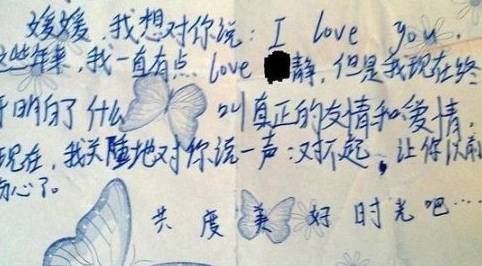 媛媛,我想对你说:I love you.
这些年来,我一直有点 love 静,但是我现在终
于明白了什么叫真正的友情和爱情.
现在,我关隆地对你说一声:对不起,让你以前
伤心了。
共度美好时光吧…